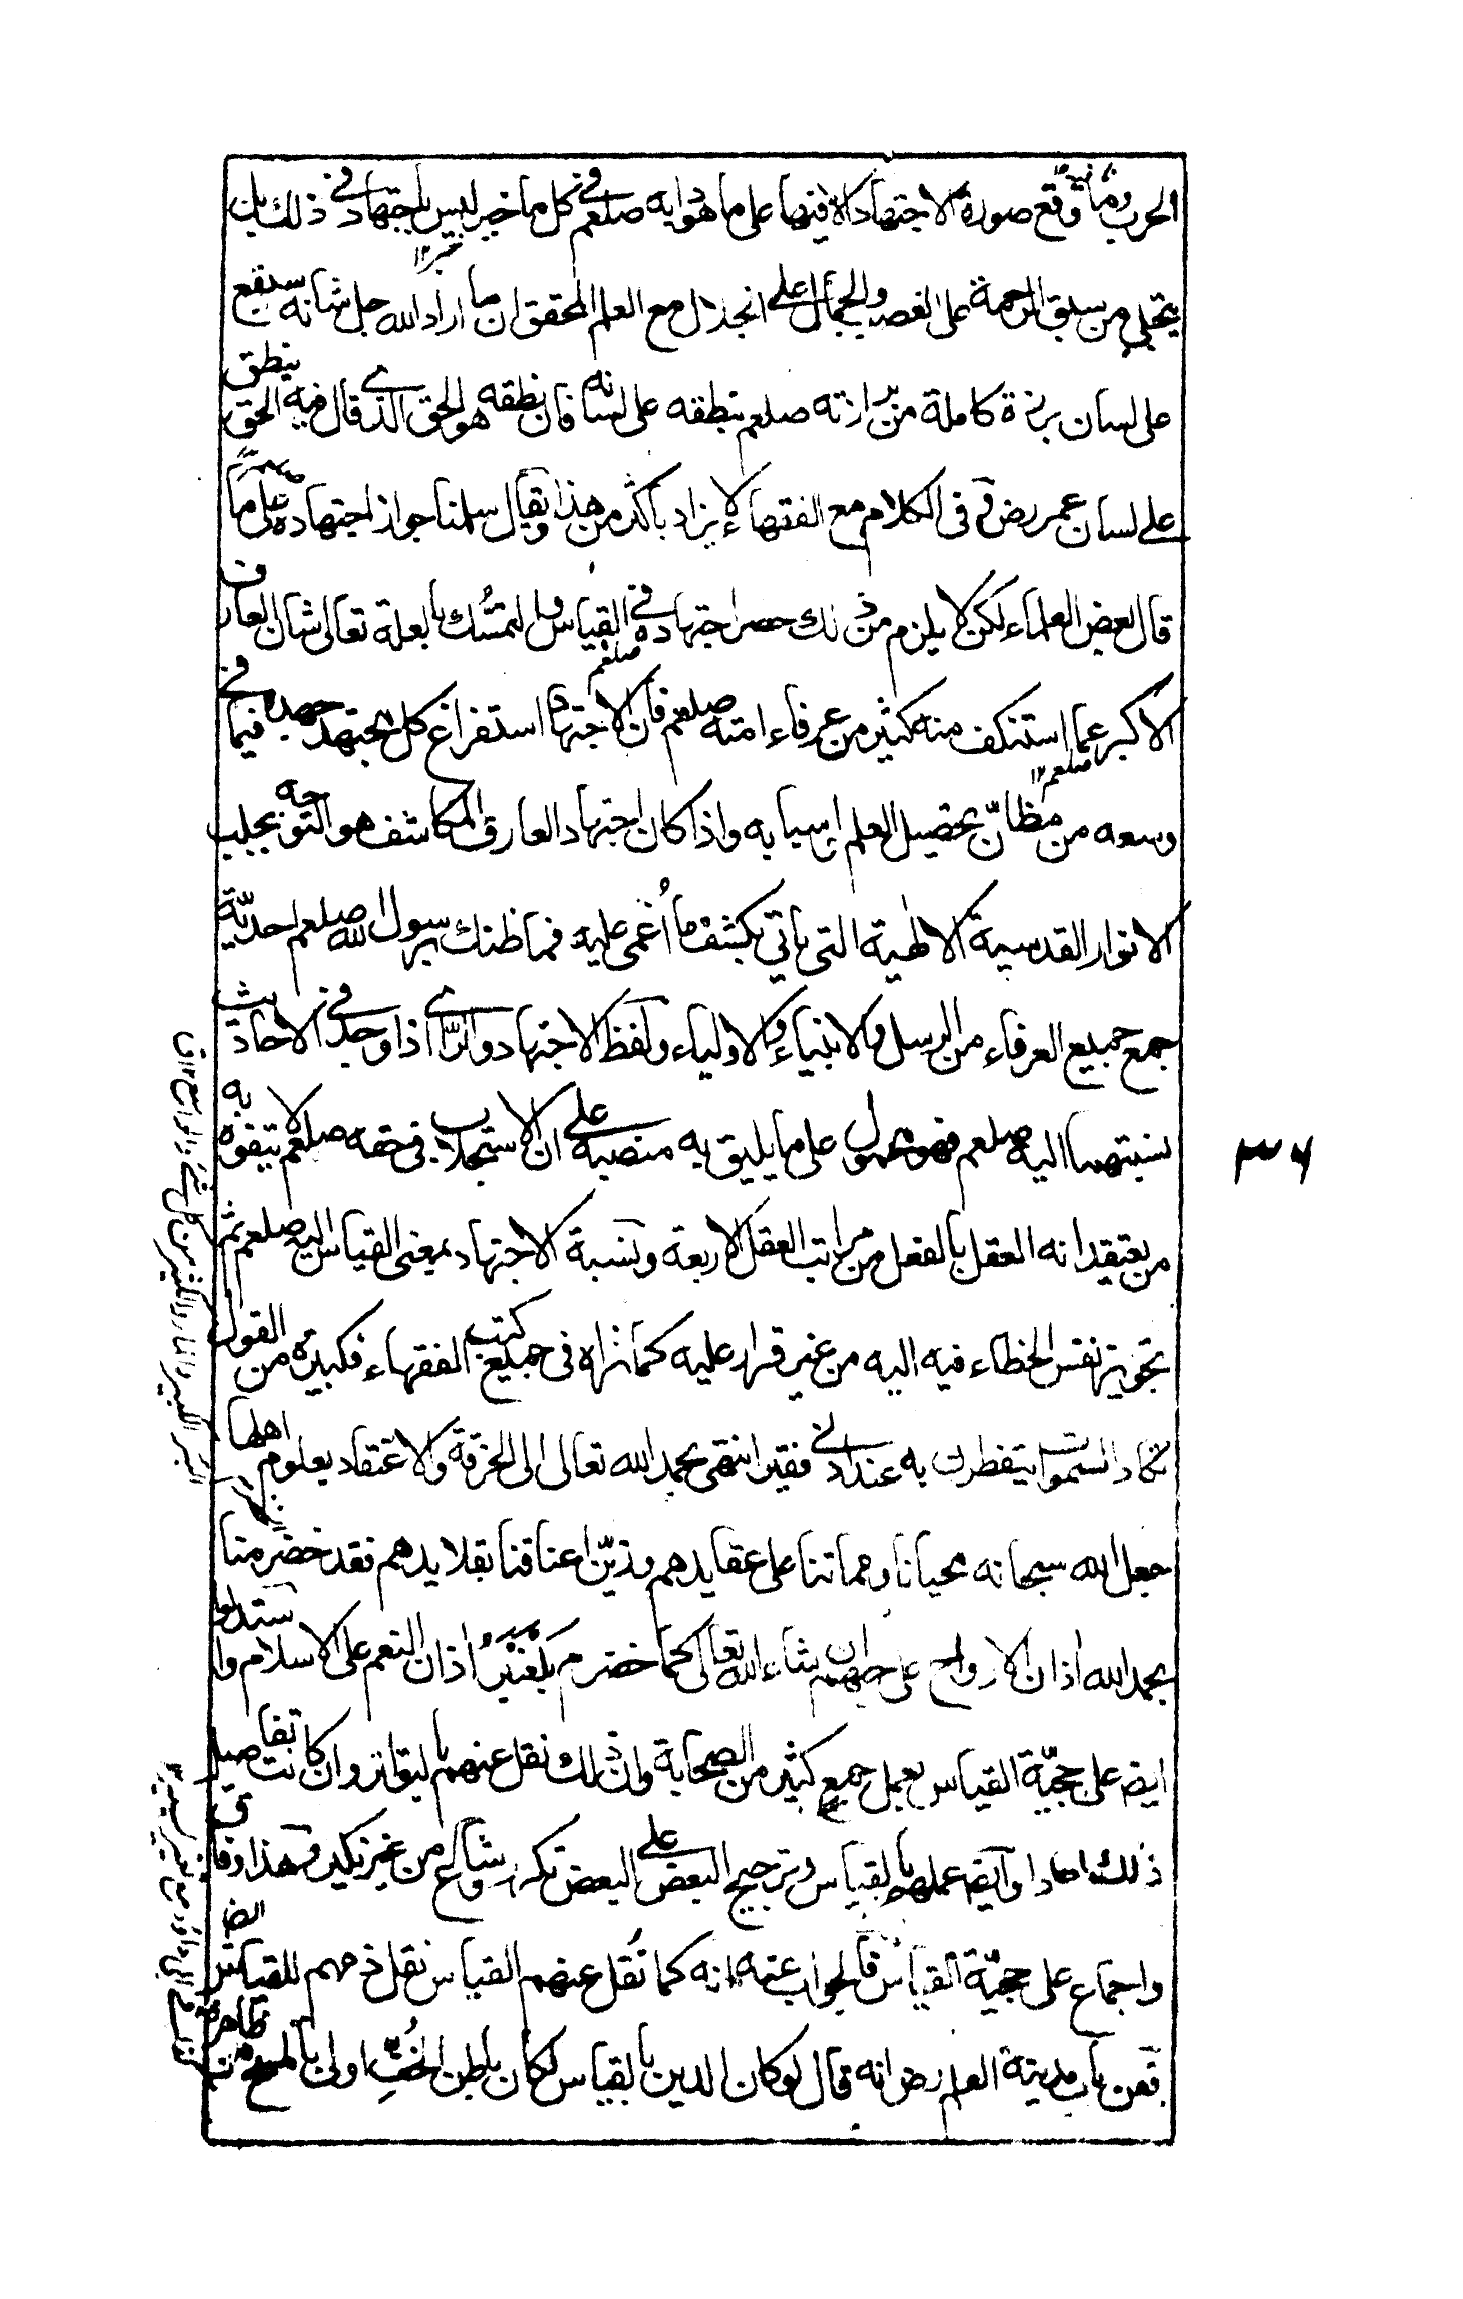 الحرب وما وقع صورة الاجتهاد الا فيها على ما هو دابه صلعم في كل ما خير ليس باجتهاد في ذلك بل
يتجلى من سبق الرحمة على الغضب والجمال على الجلال مع العلم المحقق ان ما اراد الله جل شانه سيقع
على لسان برزة كاملة من برازته صلعم بنطقه على لسانه فان نطقه هو الحق الذي قال فيه الحق ينطق
على لسان عمر رض في الكلام مع الفقهاء لا يزاد باكثر من هذا ويقال سلمنا جواز اجتهاده صلعم على ما
قال بعض العلماء لكن لا يلزم من ذلك حصر اجتهاده صلعم في القياس والتمسك بالعلة تعالى شان العارف
الاكبر عما استنكف منه كثير من عرفاء امته صلعم فان الاجتهاد استفراغ كل مجتهد جهده في فيما
وسعه من مظان تحصيل العلم اي اسبابه واذا كان اجتهاد العارف المكاشف هو التوجه بجلب
الانوار القدسية الالهية التي ياتي بكشف ما اغمى عليه فما ظنك برسول الله صلعم احدية
جمع جميع العرفاء من الرسل والانبياء والاولياء ولفظ الاجتهاد والراي اذا وجد في الاحاديث
نسبتهما اليه صلعم فهو محمول على ما يليق به منصبه على ان الاستجلاب في حقه صلعم لا يتفوه به
من يعتقد انه العقل بالفعل من مراتب العقل الاربعة ونسبة الاجتهاد بمعنى القياس اليه صلعم ثم
تجويز نفس الخطاء فيه اليه من غير قرار عليه كما نراه في جميع كتب الفقهاء فكبيرة من القول
تكاد السموات يتفطرن به عند ادنى فقير انتهى بحمد الله تعالى الى الخرقة والاعتقاد بعلوم اهلها
جعل الله سبحانه محيانا ومماتنا على عقايدهم وزين اعناقنا بقلايدهم فقد خضر منا
بحمد الله اذان الارواح على حبهم ان شاء الله تعالى كما خضرم بلعنبر اذان النعم على الاسلام واستدلوا
ايضا على حجية القياس بعمل جمع كثير من الصحابة وان ذلك نقل عنهم بالتواتر وان كانت تفاصيل
ذلك احادا وايضا عملهم بالقياس وترجيح البعض على البعض تكرر وشاع من غير نكير وهذا وفاق
واجماع على حجية القياس فالجواب عنه انه كما نقل عنهم القياس نقل ذمهم للقياس ايضا
فعن باب مدينة العلم رض انه قال لو كان الدين بالقياس لكان باطن الخف اولى بالمسح من ظاهره
٣٦